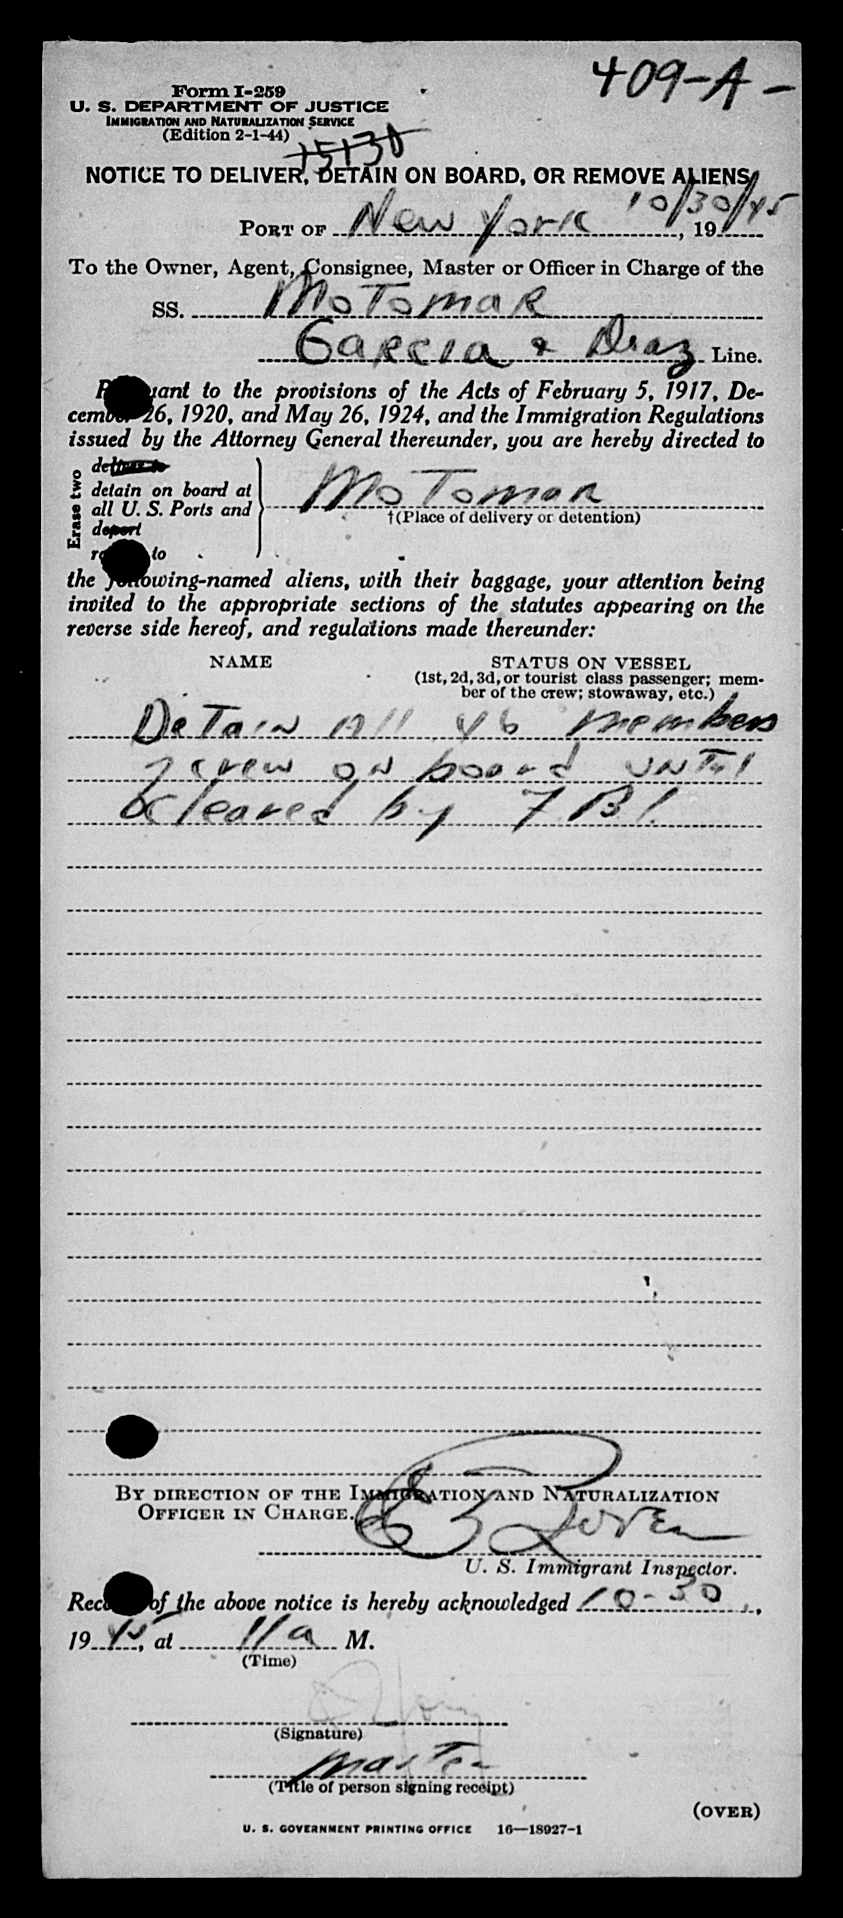 409-A-
Form I-259
U. S. DEPARTMENT OF JUSTICE
IMMIGRATION AND NATURALIZATION SERVICE
(Edition 2-1-44)
15130
NOTICE TO DELIVER, DETAIN ON BOARD, OR REMOVE ALIENS
PORT OF New York 10/30/45, 19
To the Owner, Agent, Consignee, Master or Officer in Charge of the
SS. MoTomar
Garcia & Diaz Line.
Pursuant to the provisions of the Acts of February 5, 1917, De-
cember 26, 1920, and May 26, 1924, and the Immigration Regulations
issued by the Attorney General thereunder, you are hereby directed to
Erase two
deliver to
detain on board at
all U. S. Ports and
deport
remove to
MoTomar
†(Place of delivery or detention)
the following-named aliens, with their baggage, your attention being
invited to the appropriate sections of the statutes appearing on the
reverse side hereof, and regulations made thereunder:
NAME STATUS ON VESSEL
(1st, 2d, 3d, or tourist class passenger; mem-
ber of the crew; stowaway, etc.)
DeTain All 46 members
crew on board unTil
cleared by FBI.
BY DIRECTION OF THE IMMIGRATION AND NATURALIZATION
OFFICER IN CHARGE.
U. S. Immigrant Inspector.
Receipt of the above notice is hereby acknowledged 10-30,
1945, at 11 a M.
(Time)
(Signature)
master
(Title of person signing receipt)
(OVER)
U. S. GOVERNMENT PRINTING OFFICE 16—18927-1